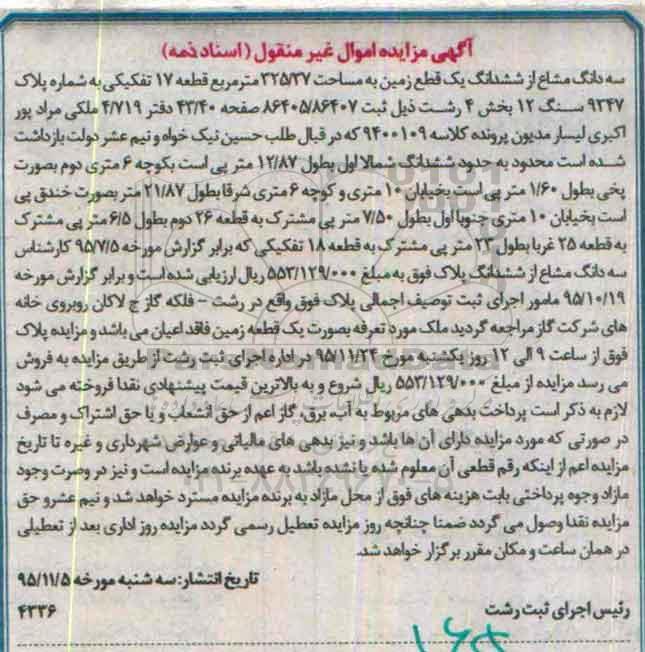 آگهی مزایده اموال غیر منقول (اسناد ذمه)
سه دانگ مشاع از ششدانگ یک قطع زمین به مساحت ۳۲۵/۳۷ مترمربع قطعه ۱۷ تفکیکی به شماره پلاک
۹۲۴۷ سنگ ۱۲ بخش ۴ رشت ذیل ثبت ۸۶۴۰۵/۸۶۴۰۷ صفحه ۴۳/۴۰ دفتر ۴/۷۱۹ ملکی مراد پور
اکبری لیسار مدیون پرونده کلاسه ۹۴۰۰۱۰۹ که در قبال طلب حسین نیک خواه و نیم عشر دولت بازداشت
شده است محدود به حدود ششدانگ شمالا اول بطول ۱۲/۸۷ متر پی است بکوچه ۶ متری دوم بصورت
پخی بطول ۱/۶۰ متر پی است بخیابان ۱۰ متری و کوچه ۶ متری شرقا بطول ۲۱/۸۷ متر بصورت خندق پی
است بخیابان ۱۰ متری جنوبا اول بطول ۷/۵۰ متر پی مشترک به قطعه ۲۶ دوم بطول ۶/۵ متر پی مشترک
به قطعه ۲۵ غربا بطول ۲۳ متر پی مشترک به قطعه ۱۸ تفکیکی که برابر گزارش مورخه ۹۵/۷/۵ کارشناس
سه دانگ مشاع از ششدانگ پلاک فوق به مبلغ ۵۵۳/۱۲۹/۰۰۰ ریال ارزیابی شده است و برابر گزارش مورخه
۹۵/۱۰/۱۹ مامور اجرای ثبت توصیف اجمالی پلاک فوق واقع در رشت – فلکه گاز خ لاکان روبروی خانه
های شرکت گاز مراجعه گردید ملک مورد تعرفه بصورت یک قطعه زمین فاقد اعیان می باشد و مزایده پلاک
فوق از ساعت ۹ الی ۱۲ روز یکشنبه مورخ ۹۵/۱۱/۲۴ در اداره اجرای ثبت رشت از طریق مزایده به فروش
می رسد مزایده از مبلغ ۵۵۳/۱۲۹/۰۰۰ ریال شروع و به بالاترین قیمت پیشنهادی نقدا فروخته می شود
لازم به ذکر است پرداخت بدهی های مربوط به آب، برق، گاز اعم از حق انشعاب و یا حق اشتراک و مصرف
در صورتی که مورد مزایده دارای آن ها باشد و نیز بدهی های مالیاتی و عوارض شهرداری و غیره تا تاریخ
مزایده اعم از اینکه رقم قطعی آن معلوم شده یا نشده باشد به عهده برنده مزایده است و نیز در وصرت وجود
مازاد وجوه پرداختی بابت هزینه های فوق از محل مازاد به برنده مزایده مسترد خواهد شد و نیم عشر و حق
مزایده نقدا وصول می گردد ضمنا چنانچه روز مزایده تعطیل رسمی گردد مزایده روز اداری بعد از تعطیلی
در همان ساعت و مکان مقرر برگزار خواهد شد.
تاریخ انتشار: سه شنبه مورخه ۹۵/۱۱/۵
رئیس اجرای ثبت رشت
۴۳۳۶